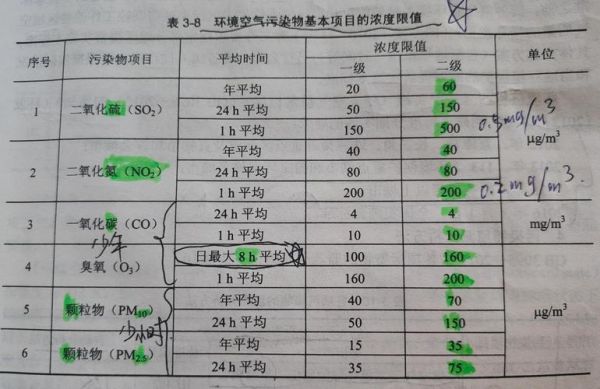 表 3-8 环境空气污染物基本项目的浓度限值
序号 污染物项目 平均时间 浓度限值 单位
一级 二级
1 二氧化硫（SO₂） 年平均 20 60 μg/m³
24 h 平均 50 150
1 h 平均 150 500 0.5mg/m³
2 二氧化氮（NO₂） 年平均 40 40
24 h 平均 80 80
1 h 平均 200 200 0.2mg/m³.
3 一氧化碳（CO） 24 h 平均 4 4 mg/m³
1 h 平均 10 10
少年
4 臭氧（O₃） 日最大 8 h 平均 100 160 μg/m³
1 h 平均 160 200
5 颗粒物（PM₁₀） 年平均 40 70
24 h 平均 50 150
少小时
6 颗粒物（PM₂.₅） 年平均 15 35
24 h 平均 35 75